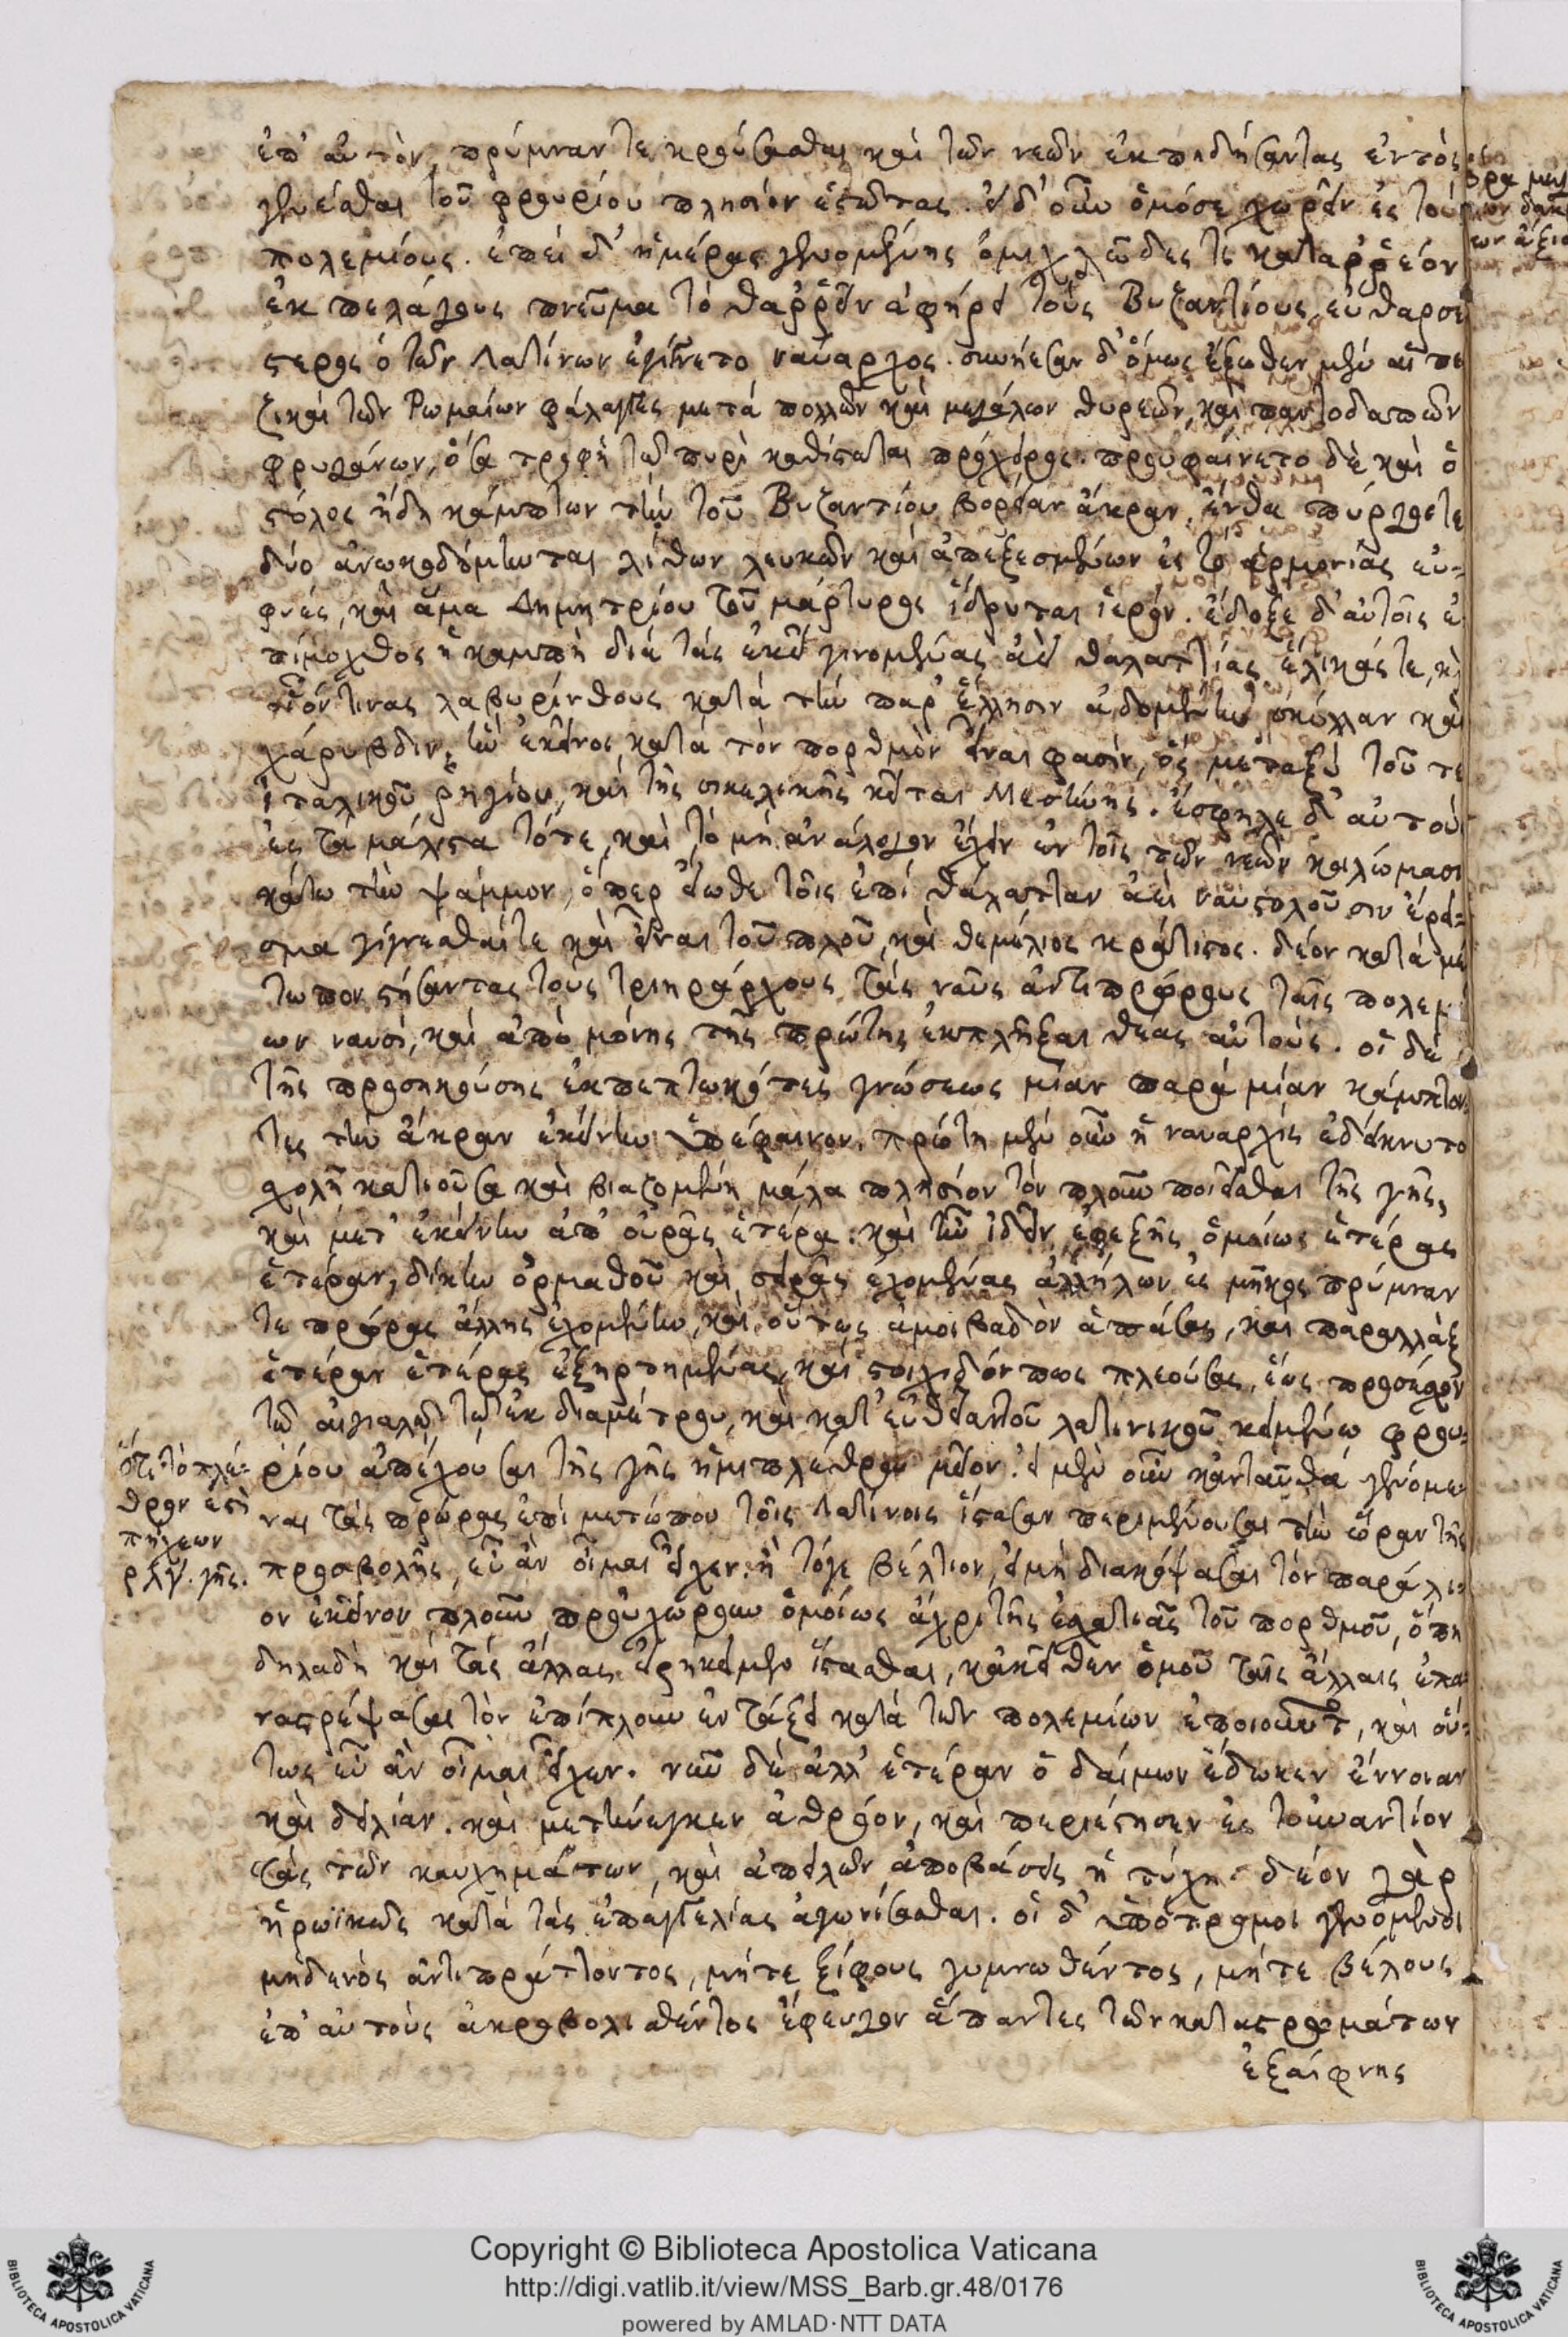 ἐπ' αὐτὸν, πρύμναν τε κρούσασθαι καὶ τῶν νεῶν ἐκπηδήσαντας ἐντὸς
γενέσθαι τοῦ φρουρίου πλησίον ἑστῶτας. εἰ δ' οὖν ὁμόσε χωρεῖν ἐς τοὺς
πολεμίους. ἐπεὶ δ' ἡμέρας γενομένης ὁμιχλῶδές τε καταῤῥέον
ἐκ πελάγους πνεῦμα τὸ θαῤῥεῖν ἀφῄρει τοὺς Βυζαντίους, εὐθαρσέ
στερος ὁ τῶν Λατίνων ἐγίνετο ναύαρχος. συνῄεσαν δ' ὅμως ἔξωθεν μὲν αἱ πε
ζικαὶ τῶν Ῥωμαίων φάλαγγες μετὰ πολλῶν καὶ μεγάλων θυρεῶν, καὶ παντοδαπῶν
φρυγάνων, ὅσα τροφὴ τῷ πυρὶ καθίσταται πρόχειρος. προὐφαίνετο δὲ καὶ ὁ
στόλος ἤδη κάμπτων τὴν τοῦ Βυζαντίου βορείαν ἄκραν, ἔνθα πύργοί τε
δύο ἀνῳκοδόμηνται λίθων λευκῶν καὶ ἀπεξεσμένων ἐς τὸ ἁρμονίας εὐ-
φυές, καὶ ἅμα Δημητρίου τοῦ μάρτυρος ἵδρυται ἱερόν. ἔδοξε δ' αὐτοῖς ἐ
πίμοχθος ἡ καμπὴ διὰ τὰς ἐκεῖ γινομένας ἀεὶ θαλαττίας ἕλικάς τε, καὶ
οἷόν τινας λαβυρίνθους κατὰ τὴν παρ' Ἕλλησιν ᾀδομένην σκύλλαν καὶ
χάρυβδιν, ἣν ἐκεῖνοι κατὰ τὸν πορθμὸν εἶναι φασίν, ὃς μεταξὺ τοῦ τε
ἰταλικοῦ ῥηγίου, καὶ τῆς σικελικῆς κεῖται Μεσήνης. ἔσφηλε δ' αὐτοὺς
ἐς τὰ μάλιστα τότε, καὶ τὸ μὴ ἀνάλογον ἔχειν ἐν τοῖς τῶν νεῶν κοιλώμασι
κάτω τὴν ψάμμον, ὅπερ εἴωθε τοῖς ἐπὶ θάλατταν ἀεὶ ναυστολοῦσιν ἔρει-
σμα γίγνεσθαί τε καὶ εἶναι τοῦ πλοῦ, καὶ θεμέλιος κράτιστος. δέον κατὰ μέ
τωπον στήσαντας τοὺς τριηράρχους τὰς ναῦς ἀντιπρῴρους ταῖς πολεμί
ων ναυσί, καὶ ἀπὸ μόνης τῆς πρώτης ἐκπλῆξαι θέας αὐτούς. οἱ δὲ
τῆς προσηκούσης ἐκπεπτωκότες γνώσεως μίαν παρὰ μίαν κάμπτον-
τες τὴν ἄκραν ἐκείνην ὑπέφαινον. πρώτη μὲν οὖν ἡ ναυαρχὶς ἐδείκνυτο
σχολῇ κατιοῦσα καὶ βιαζομένη μάλα πλησίον τὸν πλοῦν ποιεῖσθαι τῆς γῆς,
καὶ μετ' ἐκείνην ἀπ' οὐρᾶς ἑτέρα. καὶ ἦν ἰδεῖν ἐφεξῆς ὁμοίως ἑτέρας
ἑτέραν, δίκην ὁρμαθοῦ καὶ σειρᾶς ἐχομένας ἀλλήλων ἐς μῆκος πρύμναν
τε πρῴρας ἄλλης ἐχομένην, καὶ οὕτως ἀμοιβαδὸν ἁπάσας, καὶ παραλλὰξ
ἑτέραν ἑτέρας ἐξηρτημένας, καὶ στοιχηδόν πως πλεούσας, ἕως προσέσχον
τῷ αἰγιαλῷ τῷ ἐκ διαμέτρου, καὶ κατ' εὐθεῖαν τοῦ λατινικοῦ κειμένῳ φρου-
ρίου ἀπέχουσαι τῆς γῆς ἡμιπλέθρου μεῖον. εἰ μὲν οὖν κἀνταῦθα γενόμε-
ναι τὰς πρώρας ἐπὶ μετώπου τοῖς Λατίνοις ἵστασαν περιμένουσαι τὴν ὥραν τῆς
προσβολῆς, εὖ ἂν οἶμαι εἶχεν. ἢ τόγε βέλτιον, εἰ μὴ διακόψασαι τὸν παράλι-
ον ἐκεῖνον πλοῦν προὐχώρουν ὁμοίως ἄχρι τῆς ἐσχατιᾶς τοῦ πορθμοῦ, ὅπη
δηλαδὴ καὶ τὰς ἄλλας εἰρήκειμεν ἵστασθαι, κἀκεῖθεν ὁμοῦ ταῖς ἄλλαις ἐπα
ναστρέψασαι τὸν ἐπίπλουν ἐν τάξει κατὰ τῶν πολεμίων ἐποιοῦντο, καὶ οὕ-
τως εὖ ἂν οἶμαι εἶχεν. νῦν δὲ ἀλλ' ἑτέραν ὁ δαίμων ἔδωκεν ἔννοιαν
καὶ δειλίαν. καὶ μετήνεγκεν ἀθρόον, καὶ περιέστησεν ἐς τοὐναντίον
τὰς τῶν καυχημάτων, καὶ ἀπειλῶν ἀποβάσεις ἡ τύχη. δέον γὰρ
ἡρωϊκῶς κατὰ τὰς ἐπαγγελίας ἀγωνίσασθαι. οἱ δ' ὑπότρομοι γενόμενοι
μηδενὸς ἀντιπράττοντος, μήτε ξίφους γυμνωθέντος, μήτε βέλους
ἐπ' αὐτοὺς ἀκροβολισθέντος ἔφευγον ἅπαντες τῶν καταστρωμάτων
ἐξαίφνης
ὅτι τὸ πλέ-
θρον ἐστὶ
πήχεων
ρλγ. γῆς.
Copyright © Biblioteca Apostolica Vaticana
http://digi.vatlib.it/view/MSS_Barb.gr.48/0176
powered by AMLAD·NTT DATA
BIBLIOTECA APOSTOLICA VATICANA
BIBLIOTECA APOSTOLICA VATICANA